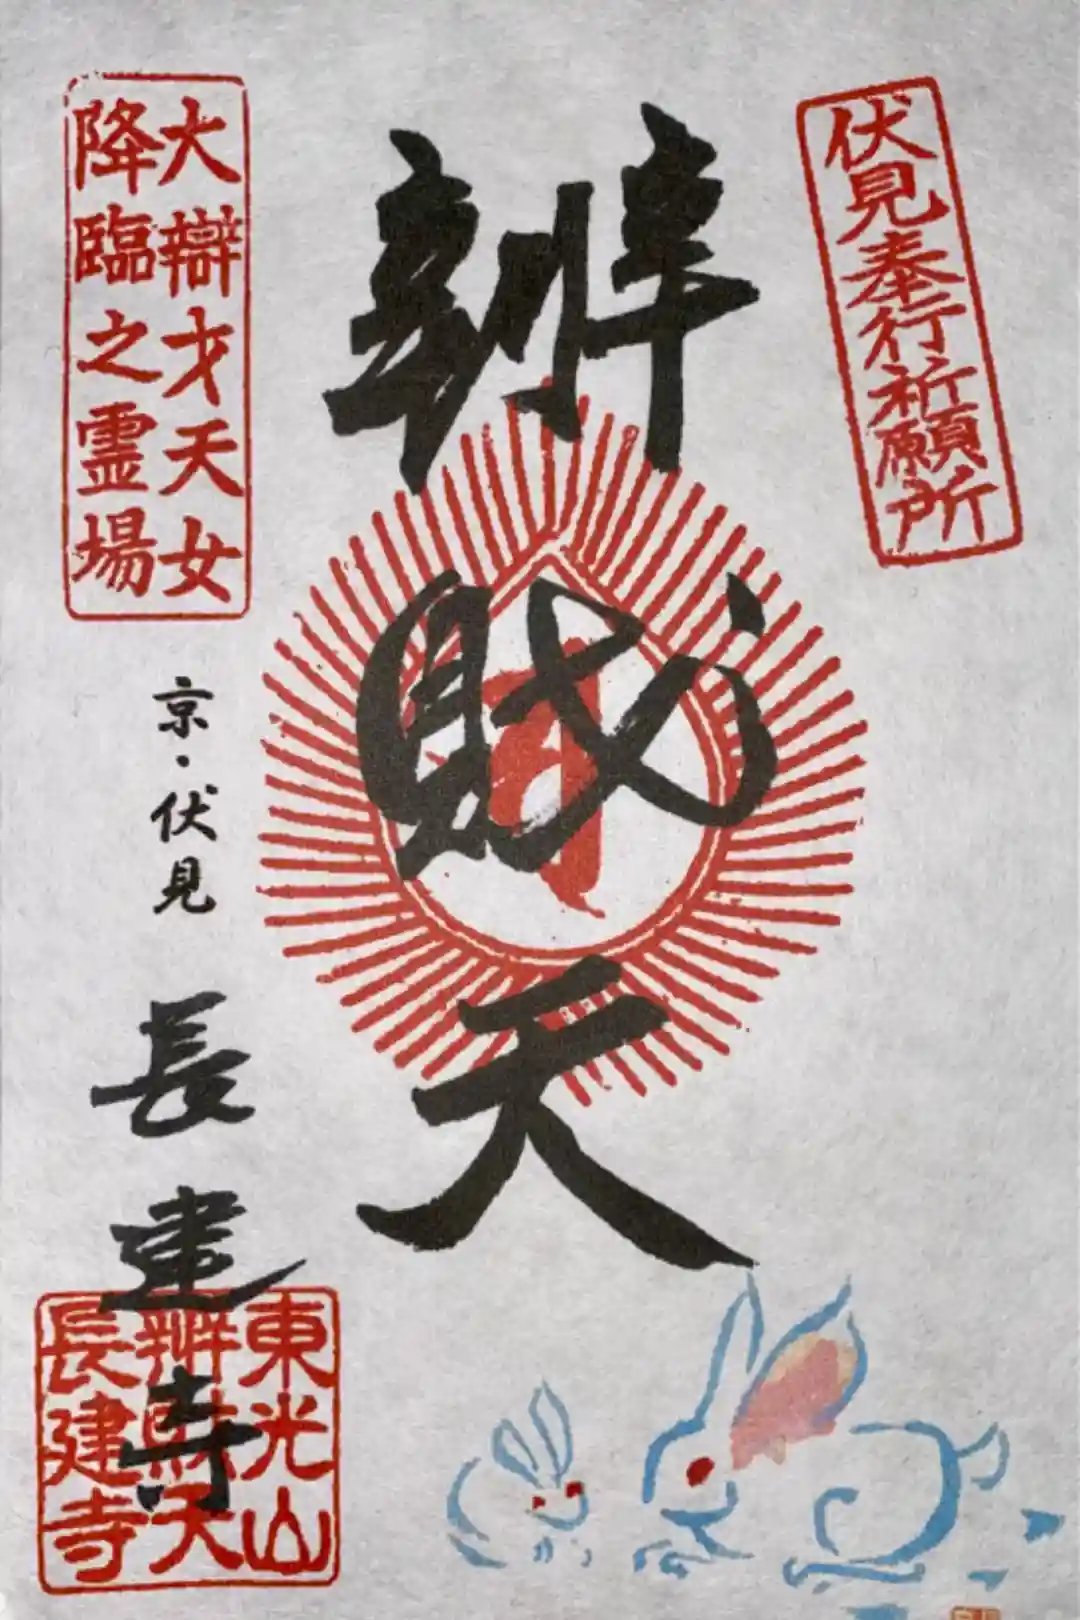 伏見奉行祈願所
辨財天
大辯才天女
降臨之霊場
京・伏見
長建寺
東光山
辨財天
長建寺